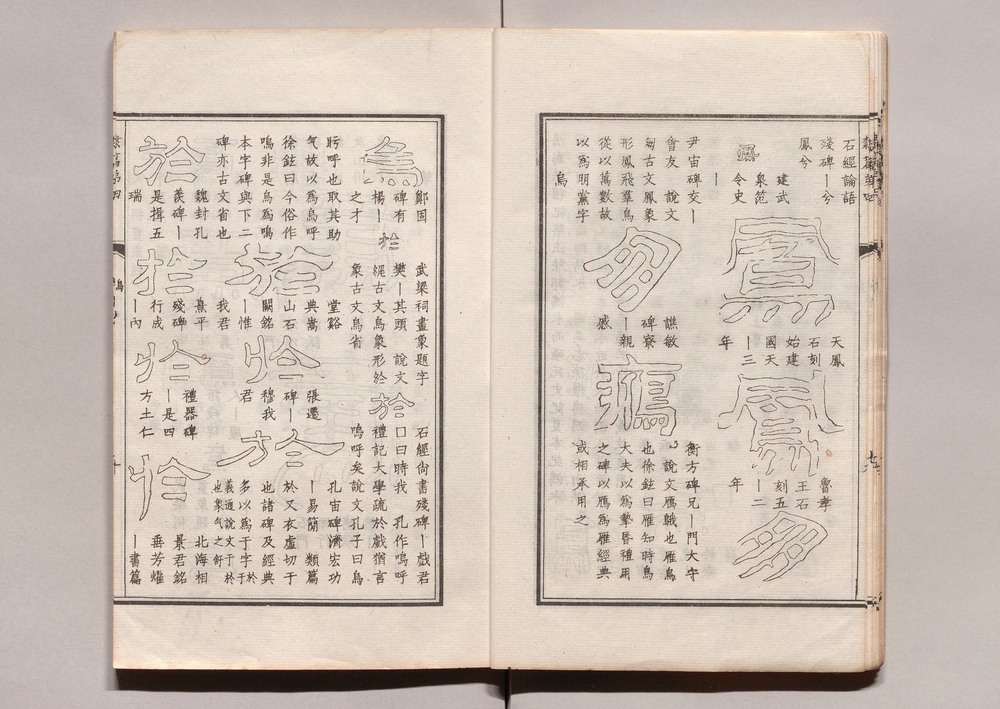 石經論語
殘碑丨兮
鳳兮
鳳
建武
泉范
令史
丨
鳳
天鳳
石刻
始建
國天
丨三
年
鳳
魯孝
王石
刻五
丨二
年
朋
尹宙碑交丨
會友 說文
古文鳳象
形鳳飛羣鳥
從以萬數故
以為朋黨字
朋
譙敏
碑寮
丨親
慼
鴈
衡方碑兄丨門大守
說文鴈䳘也雁鳥
也徐鉉曰雁知時鳥
大夫以為摯昏禮用
之碑以鴈為雁經典
或相承用之
烏
烏
鄭固
碑有
楊丨
之才
於
武梁祠畫象題字
樊丨其頭 說文
古文烏象形於
象古文烏省
於
石經尚書殘碑丨戲君
囗曰時我 孔作嗚呼
禮記大學疏於戲猶言
嗚呼矣說文孔子曰烏
盱呼也取其助
气故以為烏呼
徐鉉曰今俗作
嗚非是烏為嗚
本字碑與下二
碑亦古文省也
於
堂谿
典嵩
山石
闕銘
丨惟
我君
於
張遷
碑丨
穆我
君
於
孔宙碑濟宏功
丨易簡 類篇
於又衣虛切于
也諸碑及經典
多以為于字於
義通說文于於
也象气之舒于
於
魏封孔
羨碑丨
是揖五
瑞
於
熹平
殘碑
行成
丨內
於
禮器碑
丨是四
方土仁
於
北海相
景君銘
垂芳燿
丨書篇